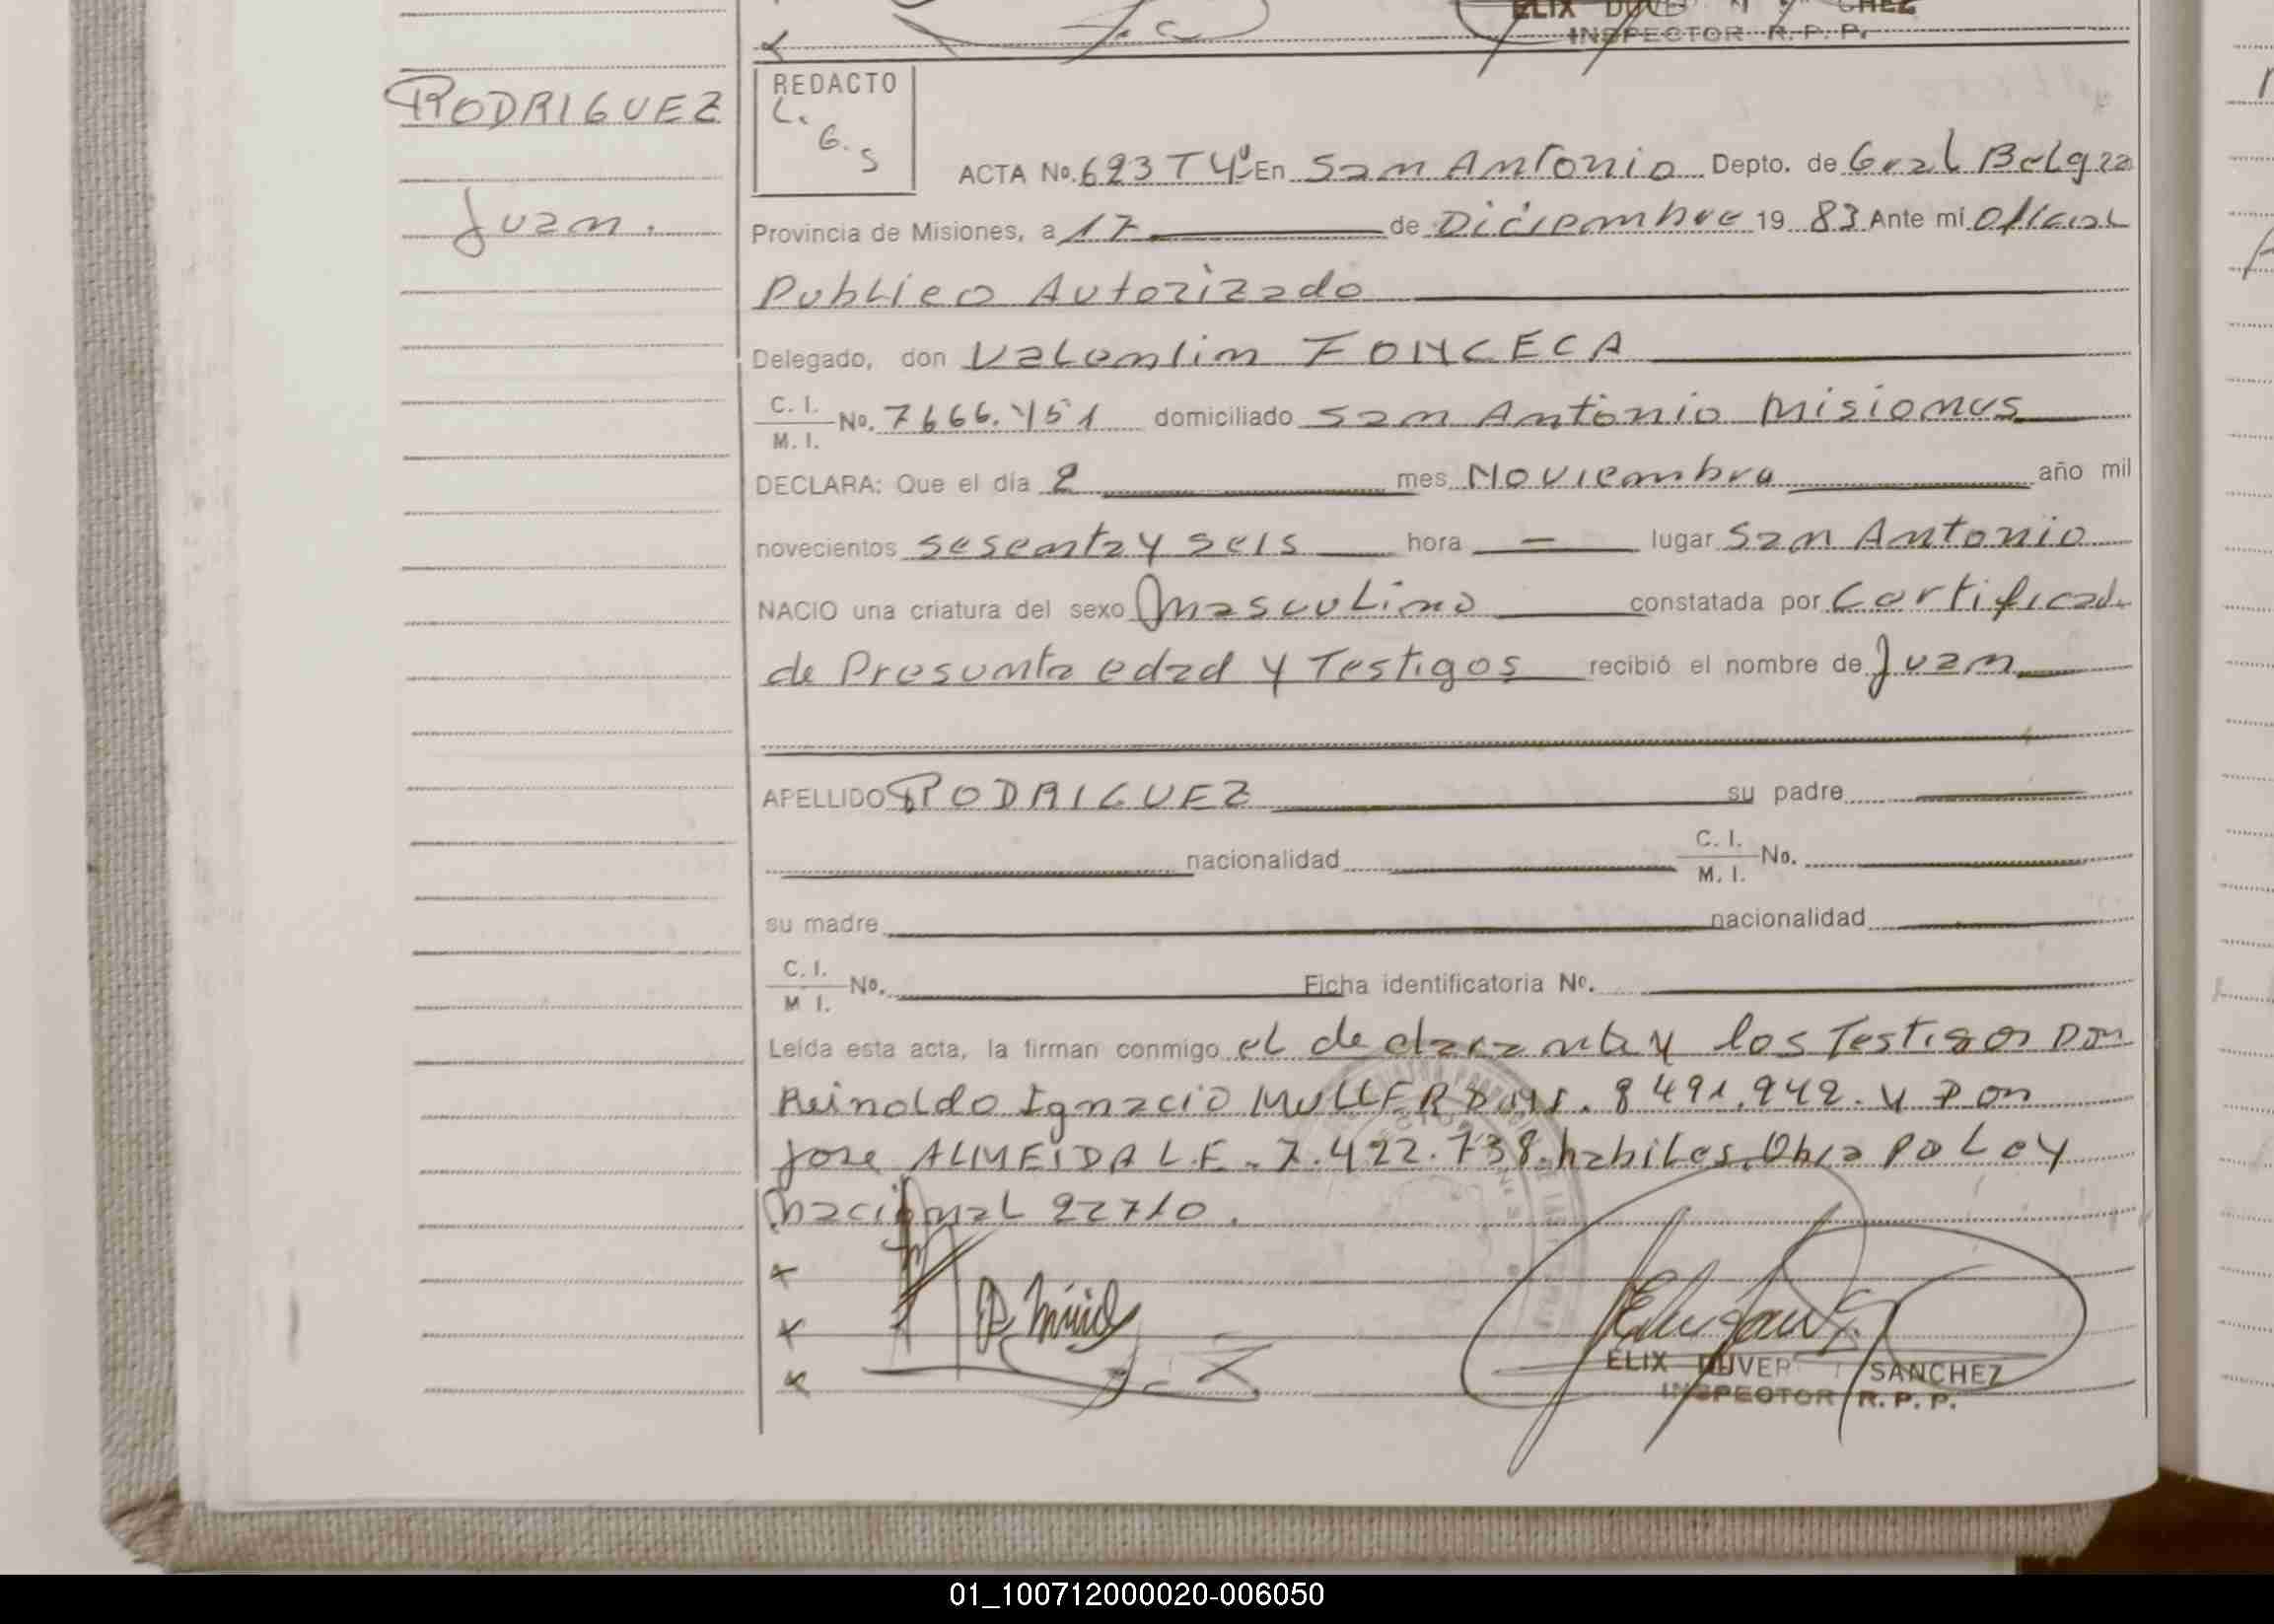 ELIX DUVER SANCHEZ
INSPECTOR R. P. P.
RODRIGUEZ
Juan.
REDACTO
L.
G.
S
ACTA No. 623 Tº 4º En San Antonio Depto. de Gral Belgra
Provincia de Misiones, a 17 de Diciembre 19 83 Ante mi Oficial
Publico Autorizado
Delegado, don Valentin FONCECA
C. I. / M. I. No. 7666.451 domiciliado San Antonio Misiones
DECLARA: Que el día 2 mes Noviembre año mil
novecientos sesenta y seis hora — lugar San Antonio
NACIO una criatura del sexo Masculino constatada por Certificado
de Presunta edad y Testigos recibió el nombre de Juan
APELLIDO RODRIGUEZ su padre
nacionalidad C. I. / M. I. No.
su madre nacionalidad
C. I. / M I. No. Ficha identificatoria No.
Leída esta acta, la firman conmigo el declarante y los Testigos Don
Reinaldo Ignacio MULLER 8491.942. y Don
Jose ALMEIDA L.E. 7.422.738. habiles. Obra Po Ley
Nacional 22710.
ELIX DUVER SANCHEZ
INSPECTOR R. P. P.
01_100712000020-006050